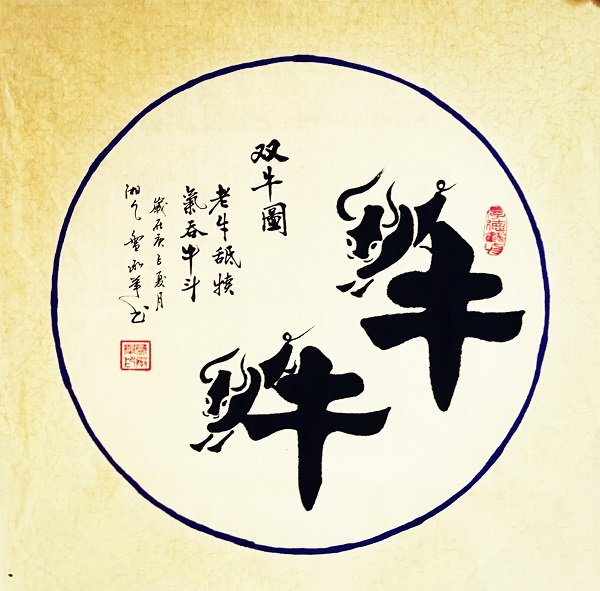 厚德載物
牛
牛
双牛圖
老牛舐犊
氣吞牛斗
歲在庚子夏月
湘人